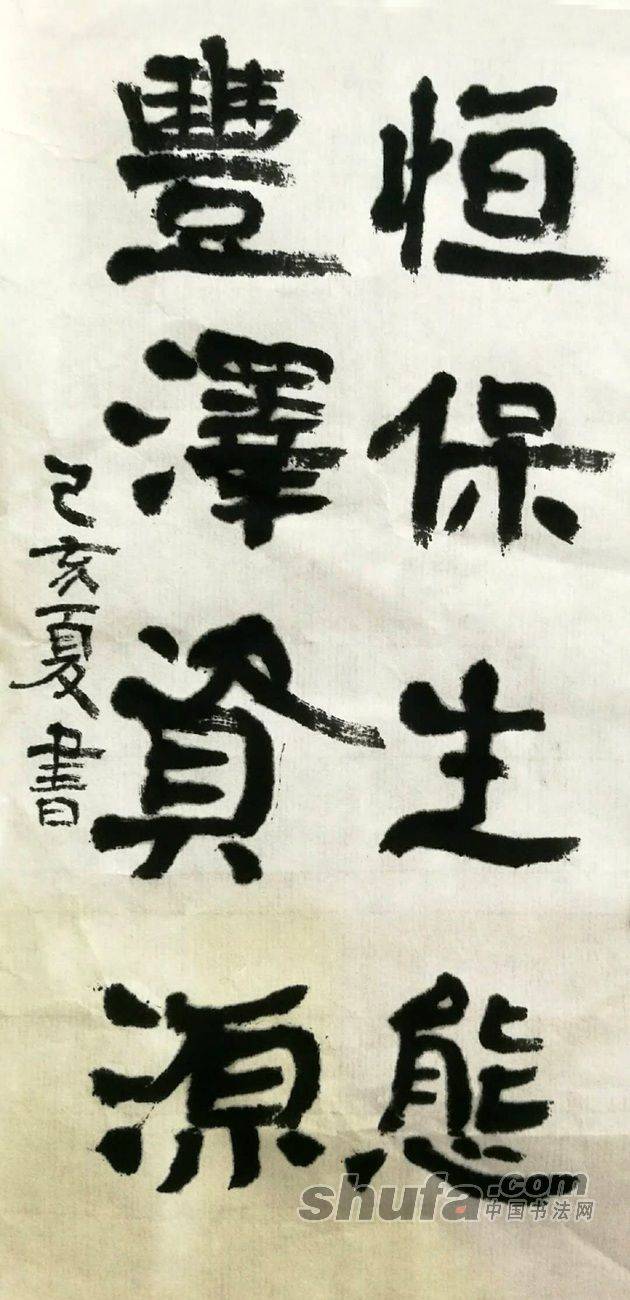 恒保生態
豐澤資源
己亥夏書
shufa.com
中国书法网